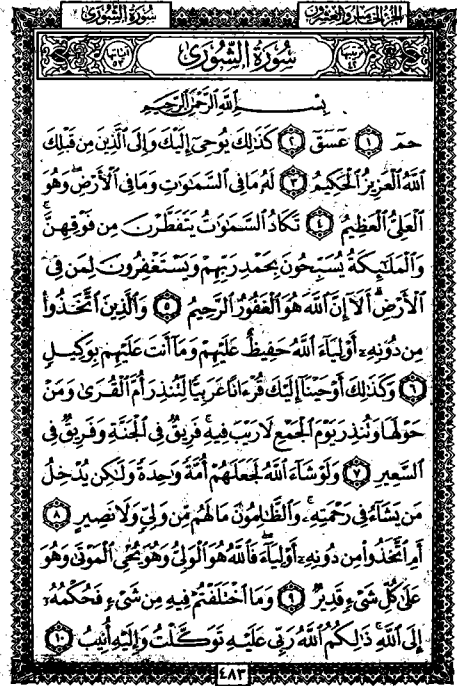 سُورَةُ الشُّورَىٰ الجزء الخامس والعشرون
سُورَةُ الشُّورَىٰ
بِسْمِ اللَّهِ الرَّحْمَٰنِ الرَّحِيمِ
حمٓ ١ عٓسٓقٓ ٢ كَذَٰلِكَ يُوحِىٓ إِلَيْكَ وَإِلَى الَّذِينَ مِن قَبْلِكَ
اللَّهُ الْعَزِيزُ الْحَكِيمُ ٣ لَهُۥ مَا فِى السَّمَٰوَٰتِ وَمَا فِى الْأَرْضِ وَهُوَ
الْعَلِىُّ الْعَظِيمُ ٤ تَكَادُ السَّمَٰوَٰتُ يَتَفَطَّرْنَ مِن فَوْقِهِنَّ
وَالْمَلَٰٓئِكَةُ يُسَبِّحُونَ بِحَمْدِ رَبِّهِمْ وَيَسْتَغْفِرُونَ لِمَن فِى
الْأَرْضِ أَلَآ إِنَّ اللَّهَ هُوَ الْغَفُورُ الرَّحِيمُ ٥ وَالَّذِينَ اتَّخَذُوا
مِن دُونِهِۦٓ أَوْلِيَآءَ اللَّهُ حَفِيظٌ عَلَيْهِمْ وَمَآ أَنتَ عَلَيْهِم بِوَكِيلٍ
٦ وَكَذَٰلِكَ أَوْحَيْنَآ إِلَيْكَ قُرْءَانًا عَرَبِيًّا لِّتُنذِرَ أُمَّ الْقُرَىٰ وَمَنْ
حَوْلَهَا وَتُنذِرَ يَوْمَ الْجَمْعِ لَا رَيْبَ فِيهِ فَرِيقٌ فِى الْجَنَّةِ وَفَرِيقٌ فِى
السَّعِيرِ ٧ وَلَوْ شَآءَ اللَّهُ لَجَعَلَهُمْ أُمَّةً وَٰحِدَةً وَلَٰكِن يُدْخِلُ
مَن يَشَآءُ فِى رَحْمَتِهِۦ وَالظَّٰلِمُونَ مَا لَهُم مِّن وَلِىٍّ وَلَا نَصِيرٍ ٨
أَمِ اتَّخَذُوا مِن دُونِهِۦٓ أَوْلِيَآءَ فَاللَّهُ هُوَ الْوَلِىُّ وَهُوَ يُحْىِ الْمَوْتَىٰ وَهُوَ
عَلَىٰ كُلِّ شَىْءٍ قَدِيرٌ ٩ وَمَا اخْتَلَفْتُمْ فِيهِ مِن شَىْءٍ فَحُكْمُهُۥٓ
إِلَى اللَّهِ ذَٰلِكُمُ اللَّهُ رَبِّى عَلَيْهِ تَوَكَّلْتُ وَإِلَيْهِ أُنِيبُ ١٠
٤٨٣